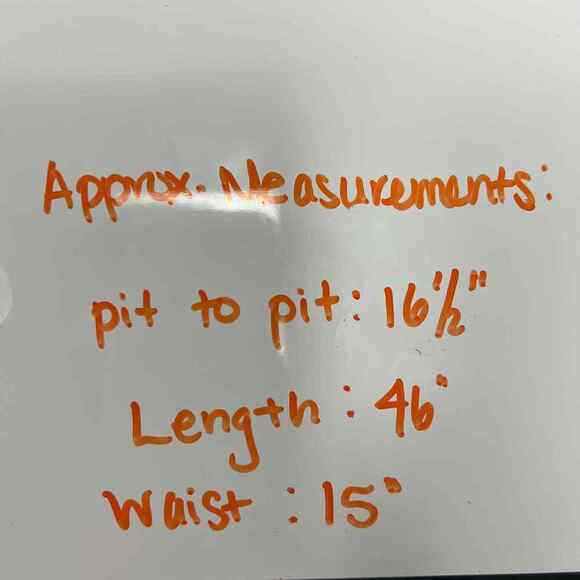 Approx. Measurements:
pit to pit: 16½"
Length: 46"
Waist: 15"